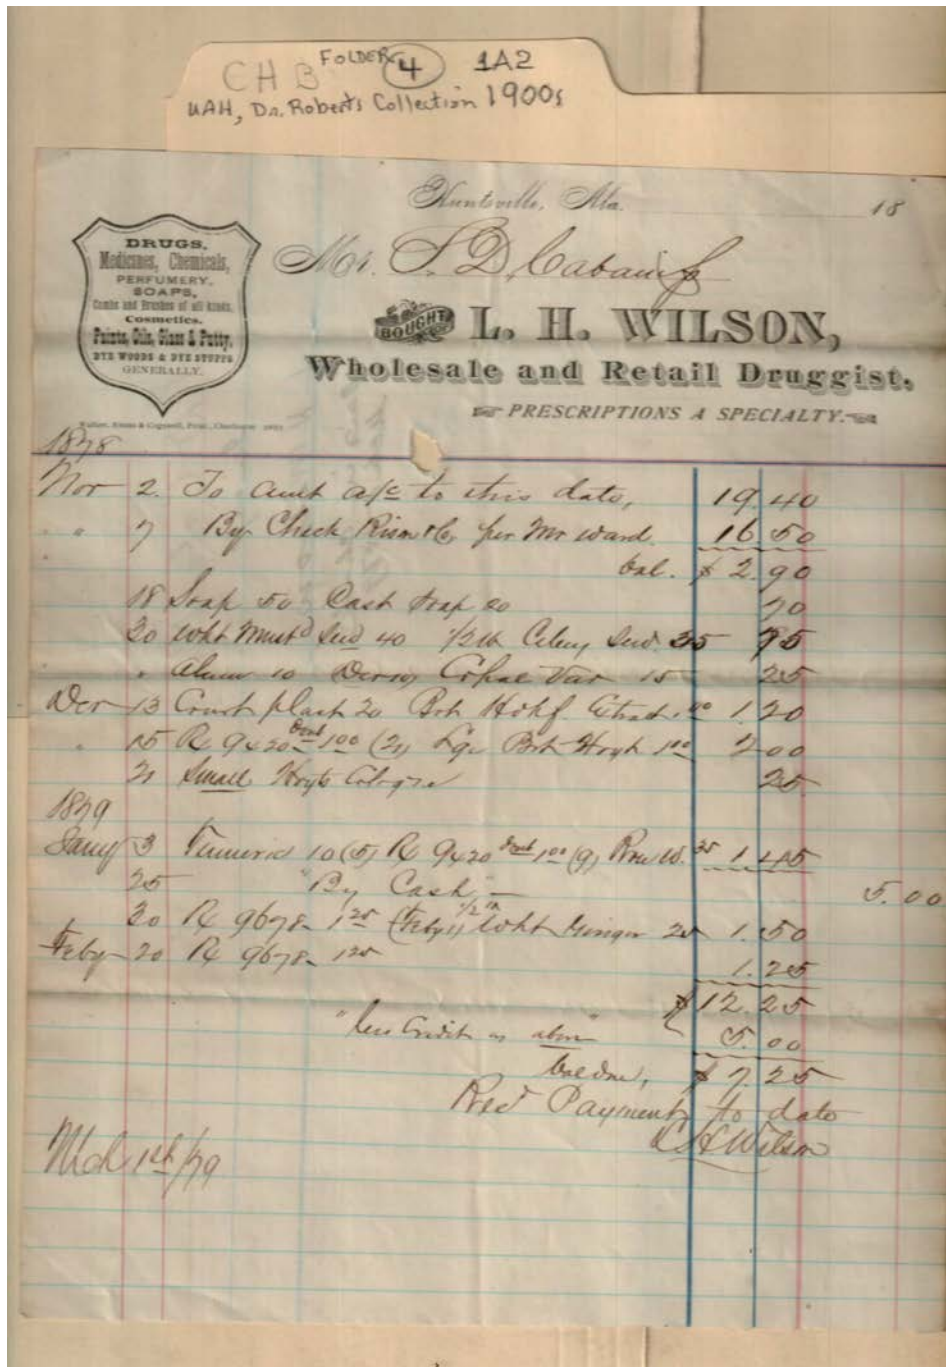 CHB FOLDER 4 1A2
UAH, Dr. Roberts Collection 1900s
Huntsville, Ala. 18
Mr. S. D. Cabaniss
DRUGS,
Medicines, Chemicals,
PERFUMERY,
SOAPS,
Combs and Brushes of all kinds,
Cosmetics.
Paints, Oils, Glass & Putty,
DYE WOODS & DYE STUFFS
GENERALLY.
BOUGHT OF L. H. WILSON,
Wholesale and Retail Druggist.
PRESCRIPTIONS A SPECIALTY.
Walker, Evans & Cogswell, Print., Charleston
1878
Nov 2. To amt a/c to this date, 19.40
" 7 By Check per Mr Ward. 16.50
bal. $ 2.90
18 Soap 50 Cast Soap 20 70
20 Wht Must'd Seed 40 1/2 lb Celery Seed 35 75
" Alum 10 Copal Var 15 25
Dec 13 Court plast 20 Bot Extract 1.00 1.20
" 15 Rx 9420 1.00 (21) Lge Bot Hoyts 1.00 2.00
21 Small Hoyts Cologne 25
1879
Jany 3 Tumeric 10 (5) Rx 9420 1.00 (9) 35 1.45
25 "By Cash" — 5.00
30 Rx 9678 1.25 (Feby 1) 1/2 lb Wht Ginger 25 1.50
Feby 20 Rx 9678 1.25 1.25
$ 12.25
"less Credit as above" 5.00
bal due, $ 7.25
Recd Payment to date
L H Wilson
Mch 1st/79